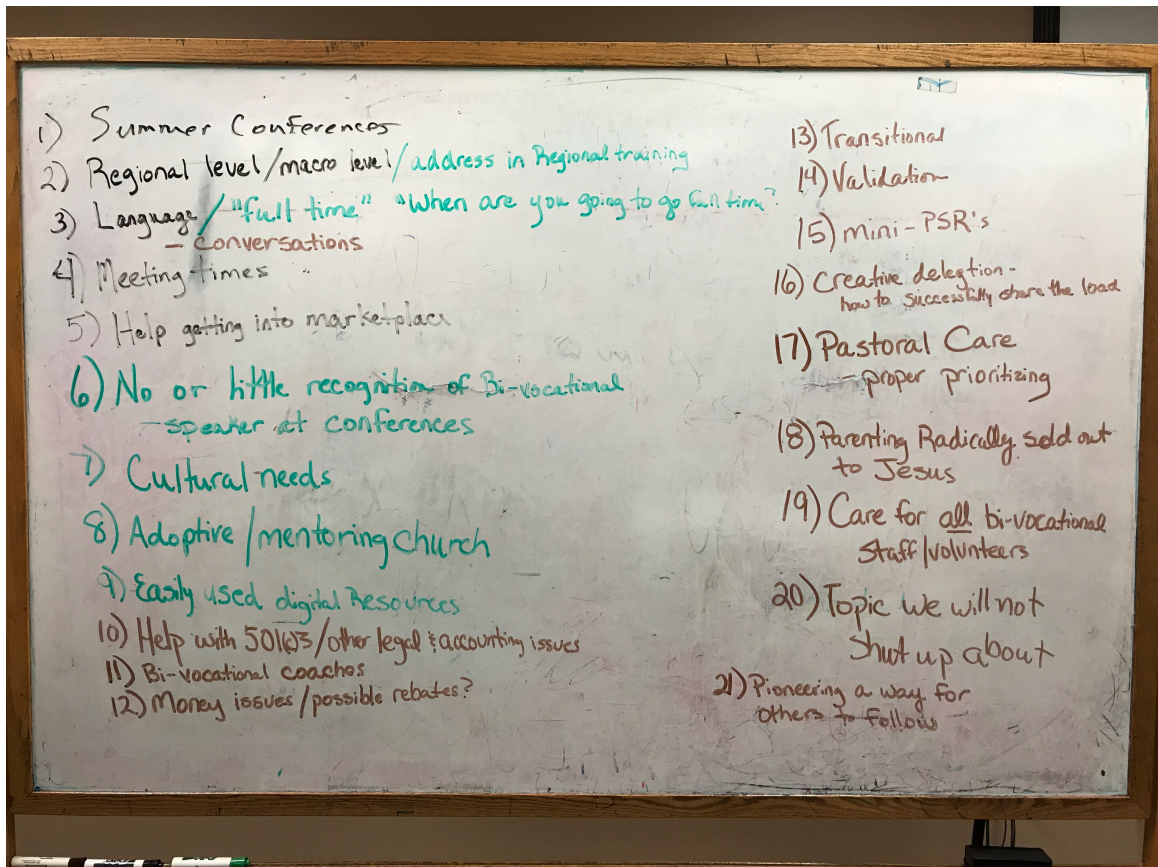 1) Summer Conferences
2) Regional level/macro level/address in Regional training
3) Language/"full time" "When are you going to go full time?
- conversations
4) Meeting times
5) Help getting into marketplace
6) No or little recognition of Bi-vocational
- speaker at conferences
7) Cultural needs
8) Adoptive/mentoring church
9) Easily used digital Resources
10) Help with 501(c)3/other legal & accounting issues
11) Bi-vocational coaches
12) Money issues/possible rebates?
13) Transitional
14) Validation
15) mini-PSR's
16) Creative delegtion -
how to successfully share the load
17) Pastoral Care
- proper prioritizing
18) Parenting Radically sold out
to Jesus
19) Care for all bi-vocational
staff/volunteers
20) Topic we will not
shut up about
21) Pioneering a way for
others to follow